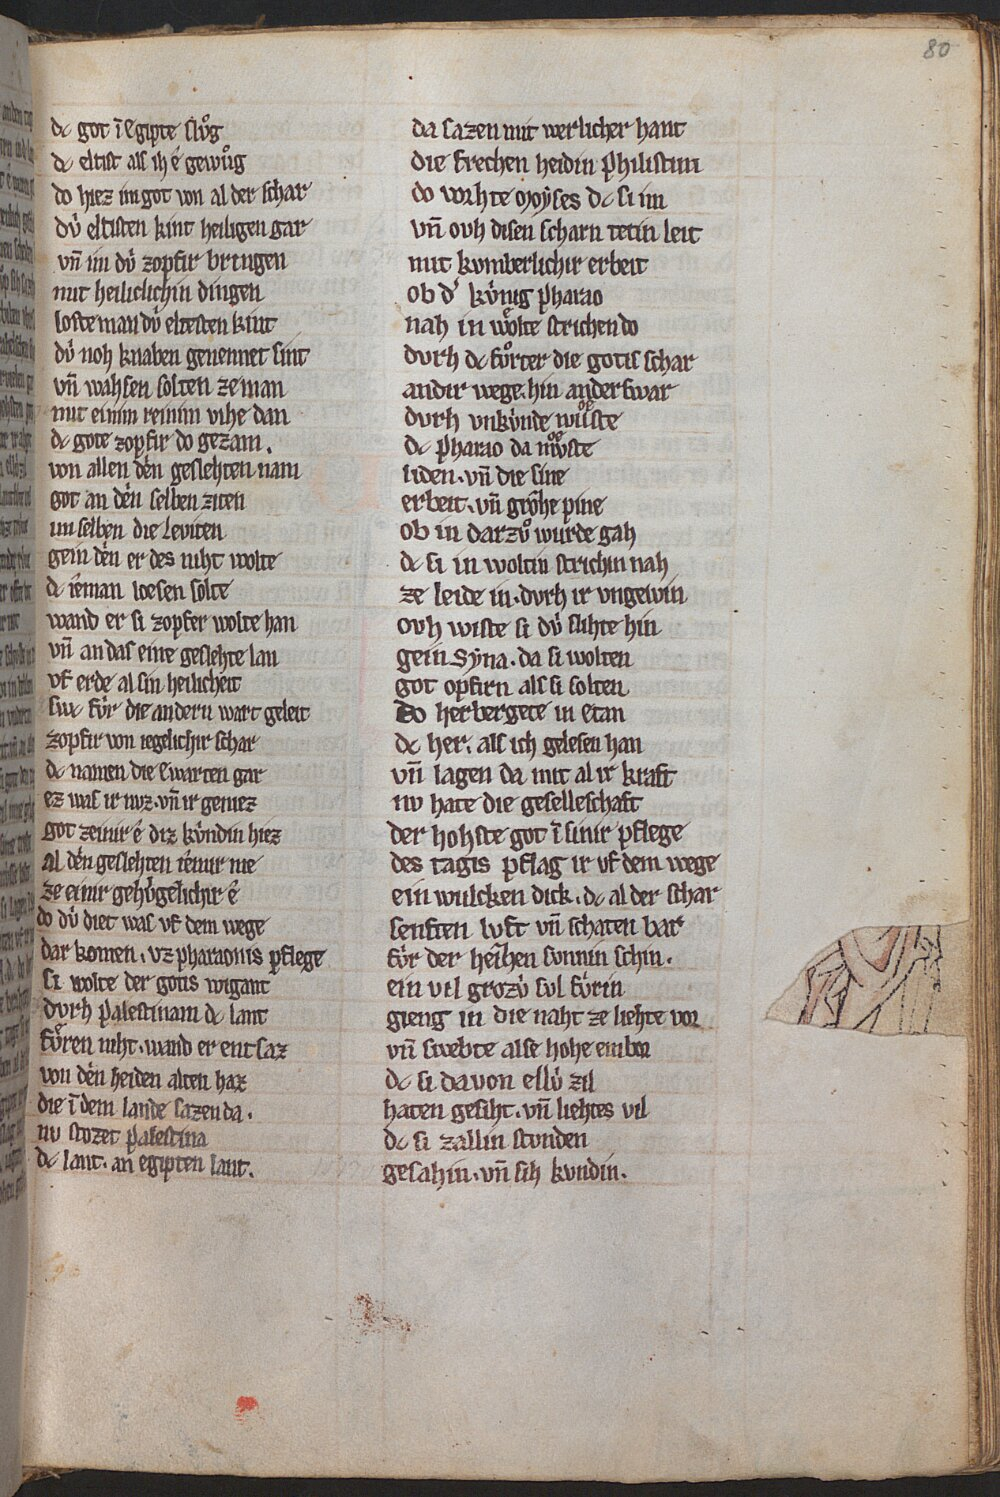 80
dc got ī Egipte slůg
dc eltist als ih ê gewůg
do hiez im got von al der schar
dv̓ eltisten kint heiligen gar
vn̄ im dv̓ zopfir bringen
mit heiliclichin dingen
loste man dv̓ eltesten kint
dv̓ noh knaben genennet sint
vn̄ wahsen solten ze man
mit einim reinim vihe dan
dc gote zopfir do gezam.
von allen dên geslehten nam
got an dên selben ziten
im selben die Leviten
gein dên er des niht wolte
dc iêman loesen solte
wand er si zopfer wolte han
vn̄ an das eine geslehte lan
vf erde al sin heilicheit
sus fv̓r die andern wart geleit
zopfir von iegelichir schar
dc namen die Ewarten gar
ez was ir nvz. vn̄ ir geniez
got zeinir ê diz kv̓ndin hiez
al dên geslehten iêmir me
ze einir gehv̓gelichir ê
do dv̓ diet was vf dem wege
dar komen. vz pharaonis pflege
si wolte der gotis wigant
dvrh Palestinam dc lant
fv̓ren niht. wand er entsaz
von dên heiden alten haz
die ī dem lande sazen da.
nv stozet Palestina
dc lant. an egipten lant.
da sazen mit werlicher hant
die frechen heidin Philistim
do vorhte Moẏses dc si im
vn̄ ovh disen scharn tetin leit
mit kvmberlichir erbeit
ob d' kv̓nig Pharao
nah in wolte strichen do
dvrh dc fořter die gotis schar
andir wege. hin anderswar
dvrh vnkv̓nde wůste
dc Pharao da můste
liden. vn̄ die sine
erbeit. vn̄ grôhe pine
ob in darzů wurde gah
dc si in woltin strichin nah
ze leide in. dvrh ir vngewin
ovh wiste si dv̓ slihte hin
gein Sẏna. da si wolten
got opfirn als si solten
Do herbergete in Etan
dc her. als ich gelesen han
vn̄ lagen da mit al ir kraft
nv hate die geselleschaft
der hohste got ī sinir pflege
des tagis pflag ir vf dem wege
ein wulcken dick. dc al der schar
senften lvft vn̄ schaten bar
fv̓r der heihen svnnin schin.
ein vil grozv̓ svl fv̓rin
gieng in die naht ze liehte vor
vn̄ swebte alse hohe embor
dc si da von ellv̓ zil
haten gesiht. vn̄ liehtes vil
dc si zallin stvnden
gesahin. vn̄ sih kvndin.